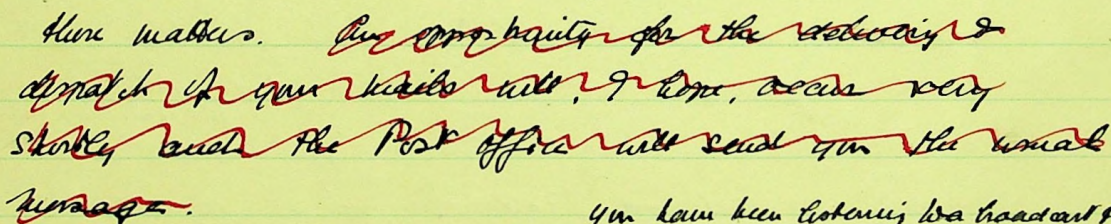 these matters. An opportunity for the delivery &
despatch of your mails will, I hope, occur very
shortly and the Post Office will send you the usual
message.
you have been listening to a broadcast